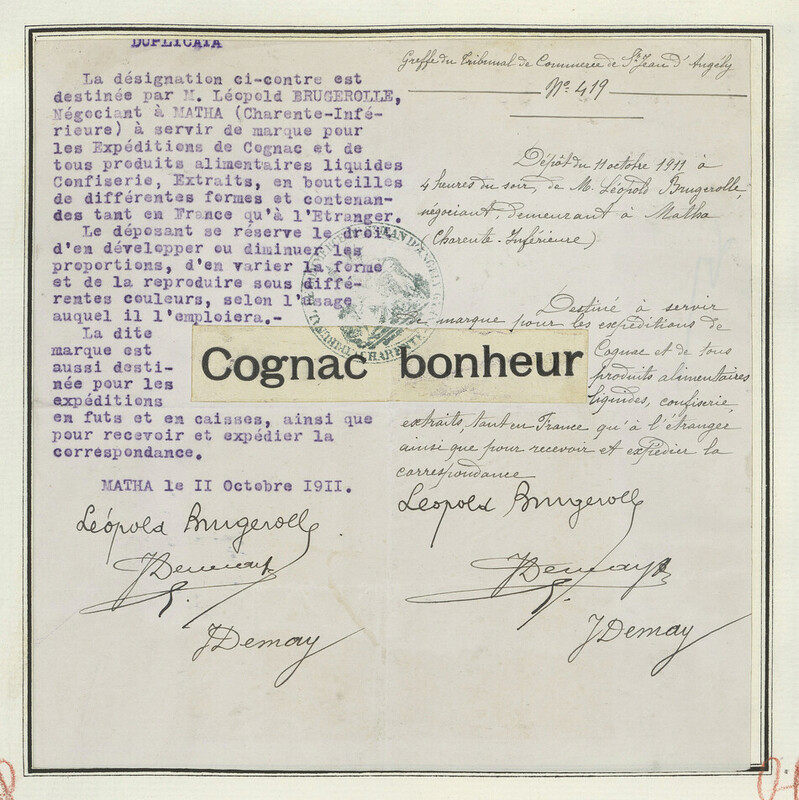 DUPLICATA
La désignation ci-contre est
destinée par M. Léopold BRUGEROLLE,
Négociant à MATHA (Charente-Infé-
rieure) à servir de marque pour
les Expéditions de Cognac et de
tous produits alimentaires liquides
Confiserie, Extraits, en bouteilles
de différentes formes et contenan-
des tant en France qu'à l'Etranger.
Le déposant se réserve le droit
d'en développer ou diminuer les
proportions, d'en varier la forme
et de la reproduire sous diffé-
rentes couleurs, selon l'usage
auquel il l'emploiera.-
La dite
marque est
aussi desti-
née pour les
expéditions
en futs et en caisses, ainsi que
pour recevoir et expédier la
correspondance.
MATHA le II Octobre I9II.
Léopold Brugerolle
JDemay
JDemay
Cognac bonheur
Greffe du Tribunal de Commerce de St Jean d'Angély
No 419
Dépôt du 11 octobre 1911 à
4 heures du soir, de M. Léopold Brugerolle,
négociant, demeurant à Matha
(Charente-Inférieure)
Destiné à servir
de marque pour les expéditions de
Cognac et de tous
produits alimentaires
liquides, confiserie,
extraits, tant en France qu'à l'étranger
ainsi que pour recevoir et expédier la
correspondance
Léopold Brugerolle
JDemay
JDemay